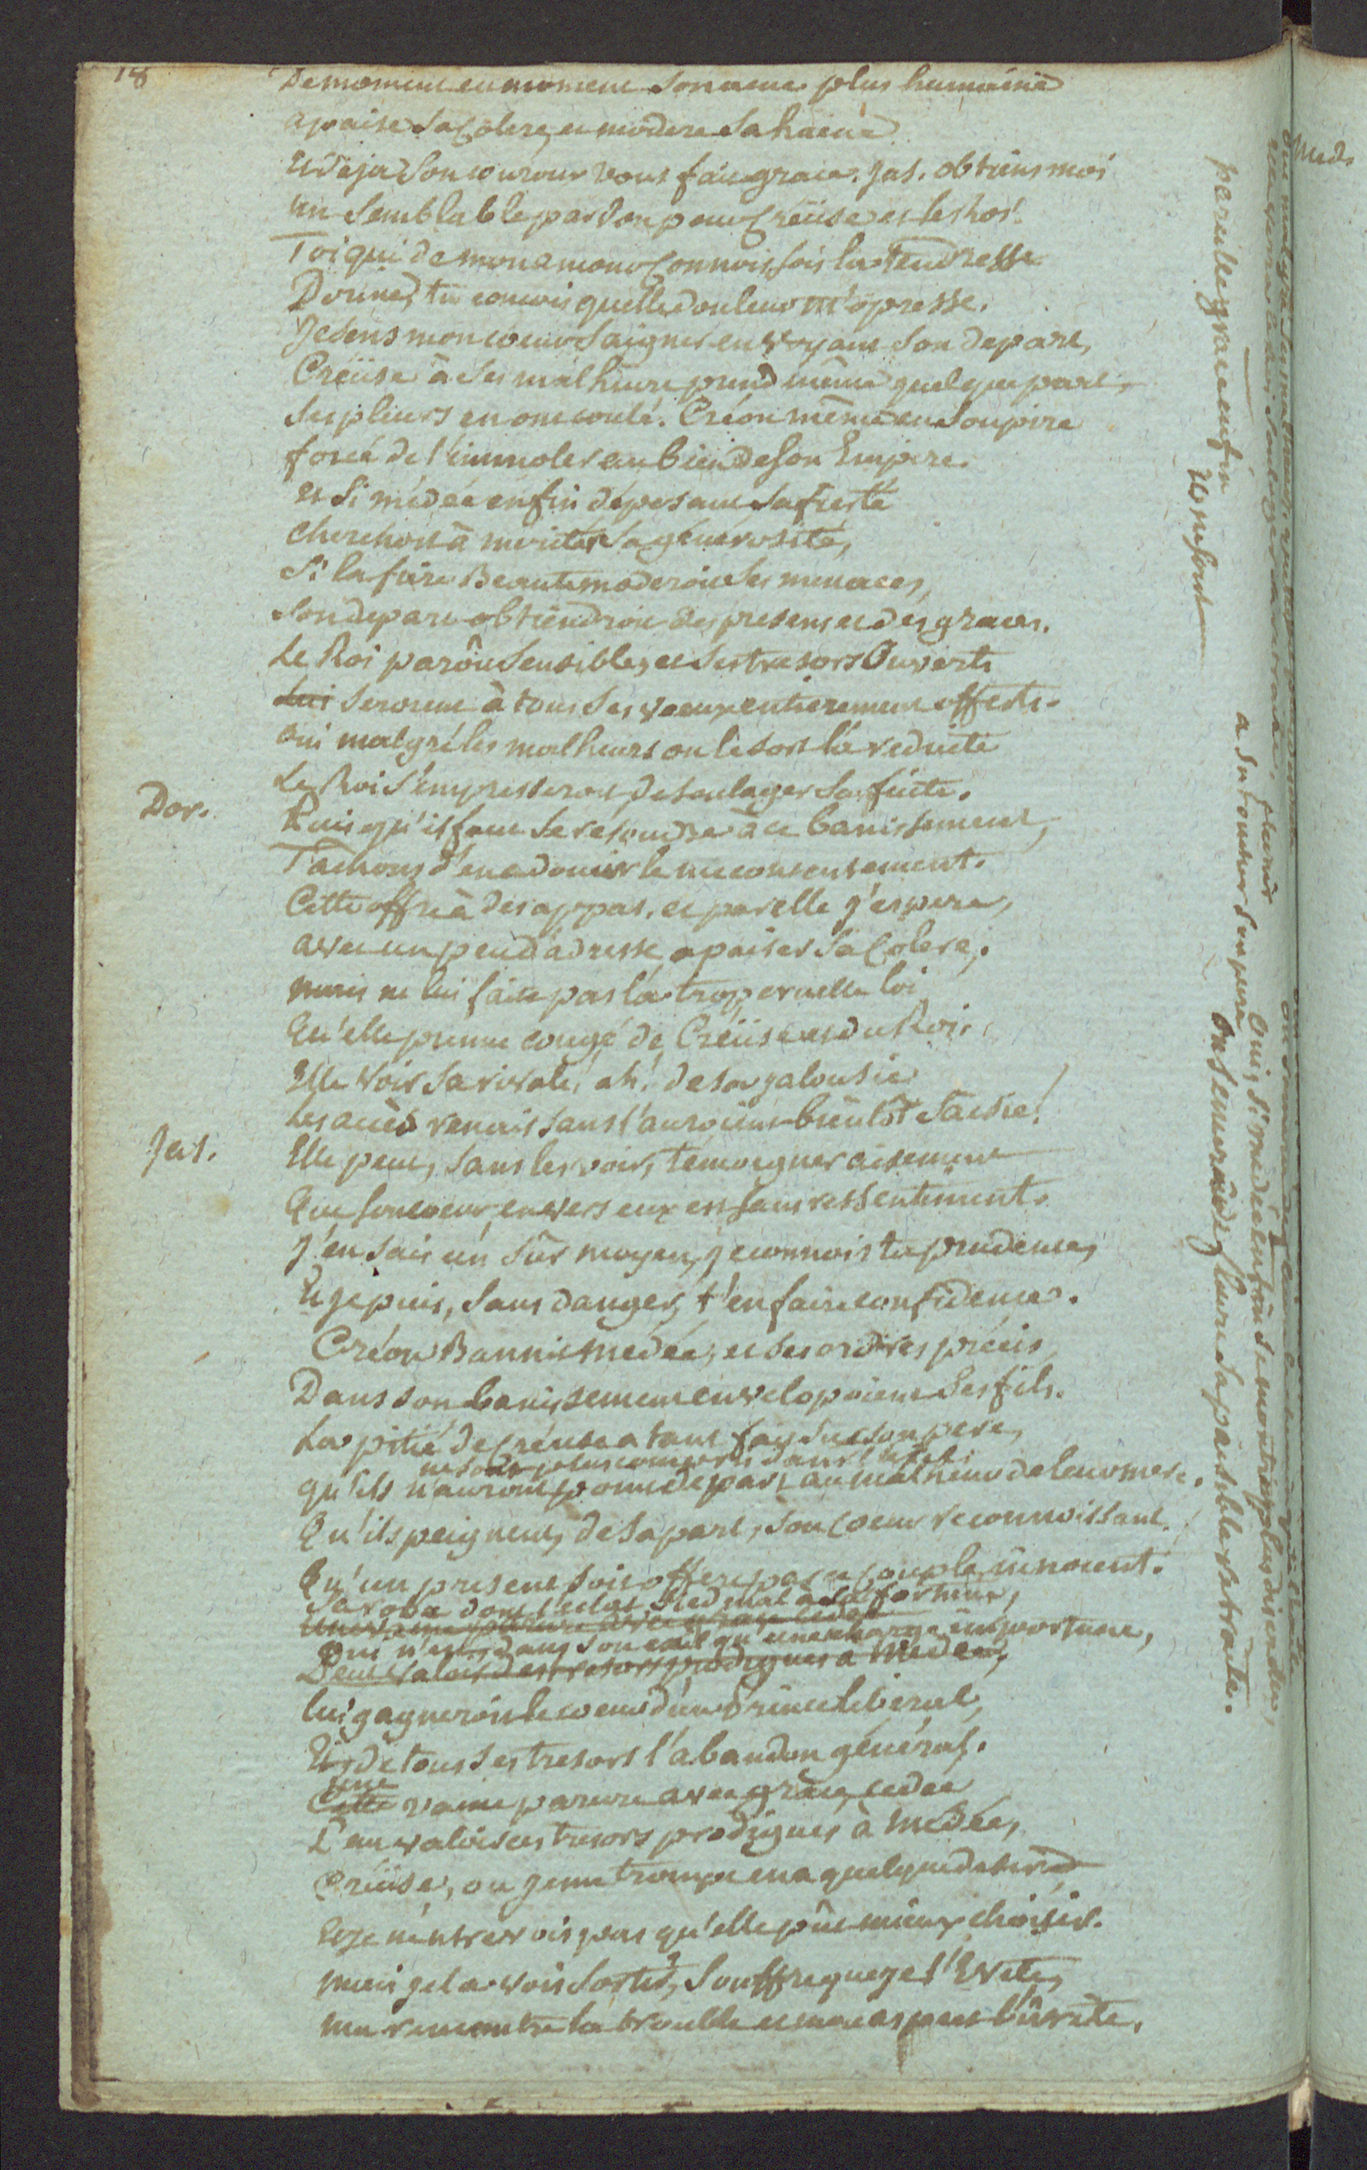 18
De moment en moment son ame plus humaine
apaise sa Colere, et modere sa haine
Et deja son couroux vous fait grace. Jas. obtiens moi
un semblable pardon pour Creüse et le Roi.
Toi qui de mon amour Connois la tendresse
Dorine, tu concois quelle douleur m'opresse.
Je sens mon coeur saigner en voyant son depart,
Creüse à ses malheurs prend même quelque part,
ses pleurs en ont coulé. Créon même en soupire
forcé de l'immoler au bien de son Empire.
et si médée enfin déposant sa fierté
cherchoit à meriter sa générosité,
si la fiere Beauté moderoit ses menaces,
son depart obtiendroit des presens et des graces.
Le Roi paroît sensible, et ses tresors Ouverts
lui seroient à tous ses voeux entierement offerts.
oui malgré les malheurs ou le sort l'a reduite
Le Roi s'empresseroit de soulager sa fuite.
Dor. Puis qu'il faut se resoudre à ce banissement,
Tachons d'en adoucir le mecontentement.
Cette offre à des appas, et par elle j'espere,
avec un peu d'adresse apaiser sa Colere,
mais ne lui faite pas la trop cruelle loi
Qu'elle prenne congé de Creüse et du Roi.
Elle voir sa rivale! ah! de sa jalousie
Les accès renaissans l'auroient bientôt saisie!
Jas. Elle peut, sans les voir, temoigner aisement
Que son coeur, envers eux est sans ressentiment.
J'en sais un sûr moyen, je connois ta prudence,
Et je puis, sans danger, t'en faire confidence.
Créon Bannit medée, et ses ordres précis
Dans son banissement envelopoient ses fils.
La pitié de Creuse a tant fait sur son pere,
ne sont plus compris dans l'
qu'ils n'auront point de part au malheur de leur mere.
Qu'ils peignent, de sa part, son Coeur reconnoissant.
Qu'un present soit offert par ce couple innocent.
Sa robe dont l'eclat sied mal a sa fortune,
une vaine parure avec grace cedée
Qui n'est dans son exil qu'une charge importune,
Peut valoir des tresors prodigués à Medée,
lui gagneroit le coeur d'un Prince liberal,
Et de tous ses tresors l'abandon général.
une
Cette vaine parure avec grace cedée
L'en valoir ces tresors prodigués à Médée,
Creüse, ou je me trompe en a quelque desir
Et je n'entrevois pas qu'elle pût mieux choisir.
mais je la vois sortir, souffre que je l'Evite,
ma rencontre la trouble et mon aspect l'irrite.
a son tour
Oui, si médée enfin se montroit plus discrete,
On sauroit de
sa paisible retraite.
Med.